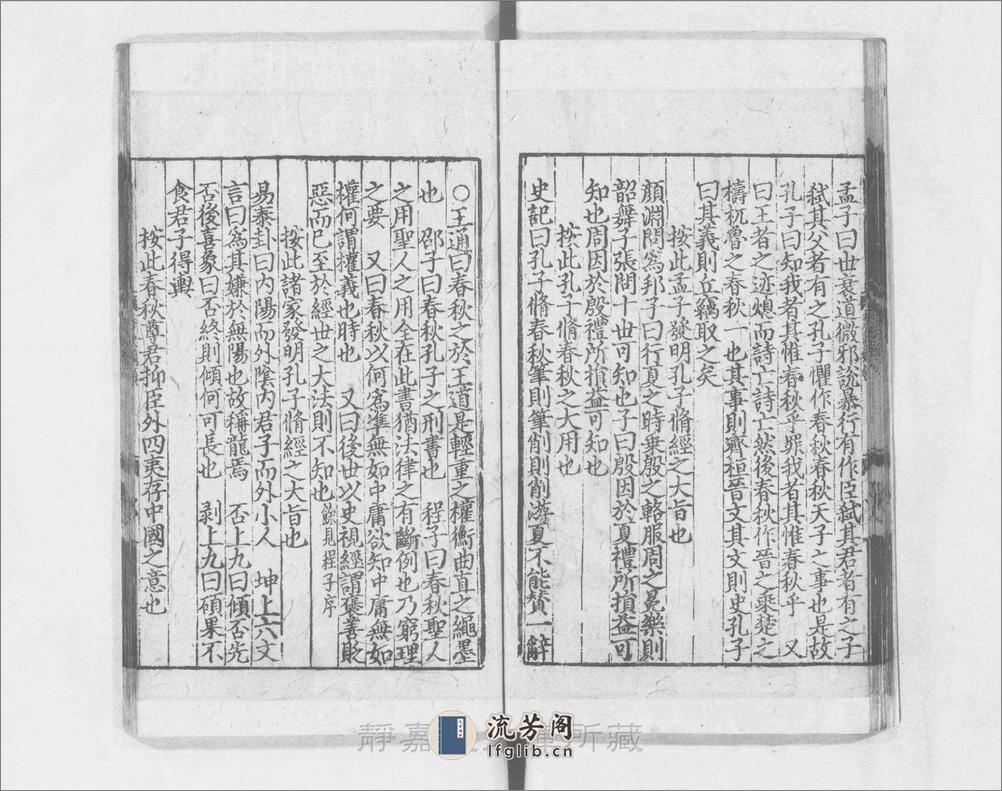 孟子曰世衰道微邪說暴行有作臣弒其君者有之子
弒其父者有之孔子懼作春秋春秋天子之事也是故
孔子曰知我者其惟春秋乎罪我者其惟春秋乎　又
曰王者之迹熄而詩亡詩亡然後春秋作晉之乘楚之
檮杌魯之春秋一也其事則齊桓晉文其文則史孔子
曰其義則丘竊取之矣
按此孟子發明孔子脩經之大旨也
顏淵問爲邦子曰行夏之時乗殷之輅服周之冕樂則
韶舞子張問十世可知也子曰殷因於夏禮所損益可
知也周因於殷禮所損益可知也
按此孔子脩春秋之大用也
史記曰孔子脩春秋筆則筆削則削游夏不能賛一辭
○王通曰春秋之於王道是輕重之權衡曲直之繩墨
也　邵子曰春秋孔子之刑書也　程子曰春秋聖人
之用聖人之用全在此書猶法律之有斷例也乃窮理
之要　又曰春秋以何爲準無如中庸欲知中庸無如
權何謂權義也時也　又曰後世以史視經謂褒善貶
惡而已至於經世之大法則不知也餘見程子序
按此諸家發明孔子脩經之大旨也
易泰卦曰内陽而外陰内君子而外小人　坤上六文
言曰爲其嫌於無陽也故稱龍焉　否上九曰傾否先
否後喜象曰否終則傾何可長也　剥上九曰碩果不
食君子得輿
按此春秋尊君抑臣外四夷存中國之意也
靜嘉
所藏
流芳阁
lfglib.cn